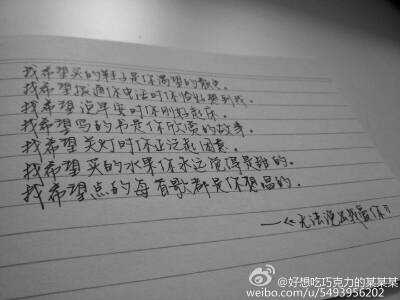 我希望买的鞋子是你渴望的款式。
我希望拨通你电话时你恰好要到我。
我希望说早安时你刚好起床。
我希望写的书是你欣赏的故事。
我希望关灯时你正泛起困意。
我希望买的水果你永远觉得是甜的。
我希望点的每首歌都是你想唱的。
——《无法说我爱你》
@好想吃巧克力的某某某
weibo.com/u/5493956202